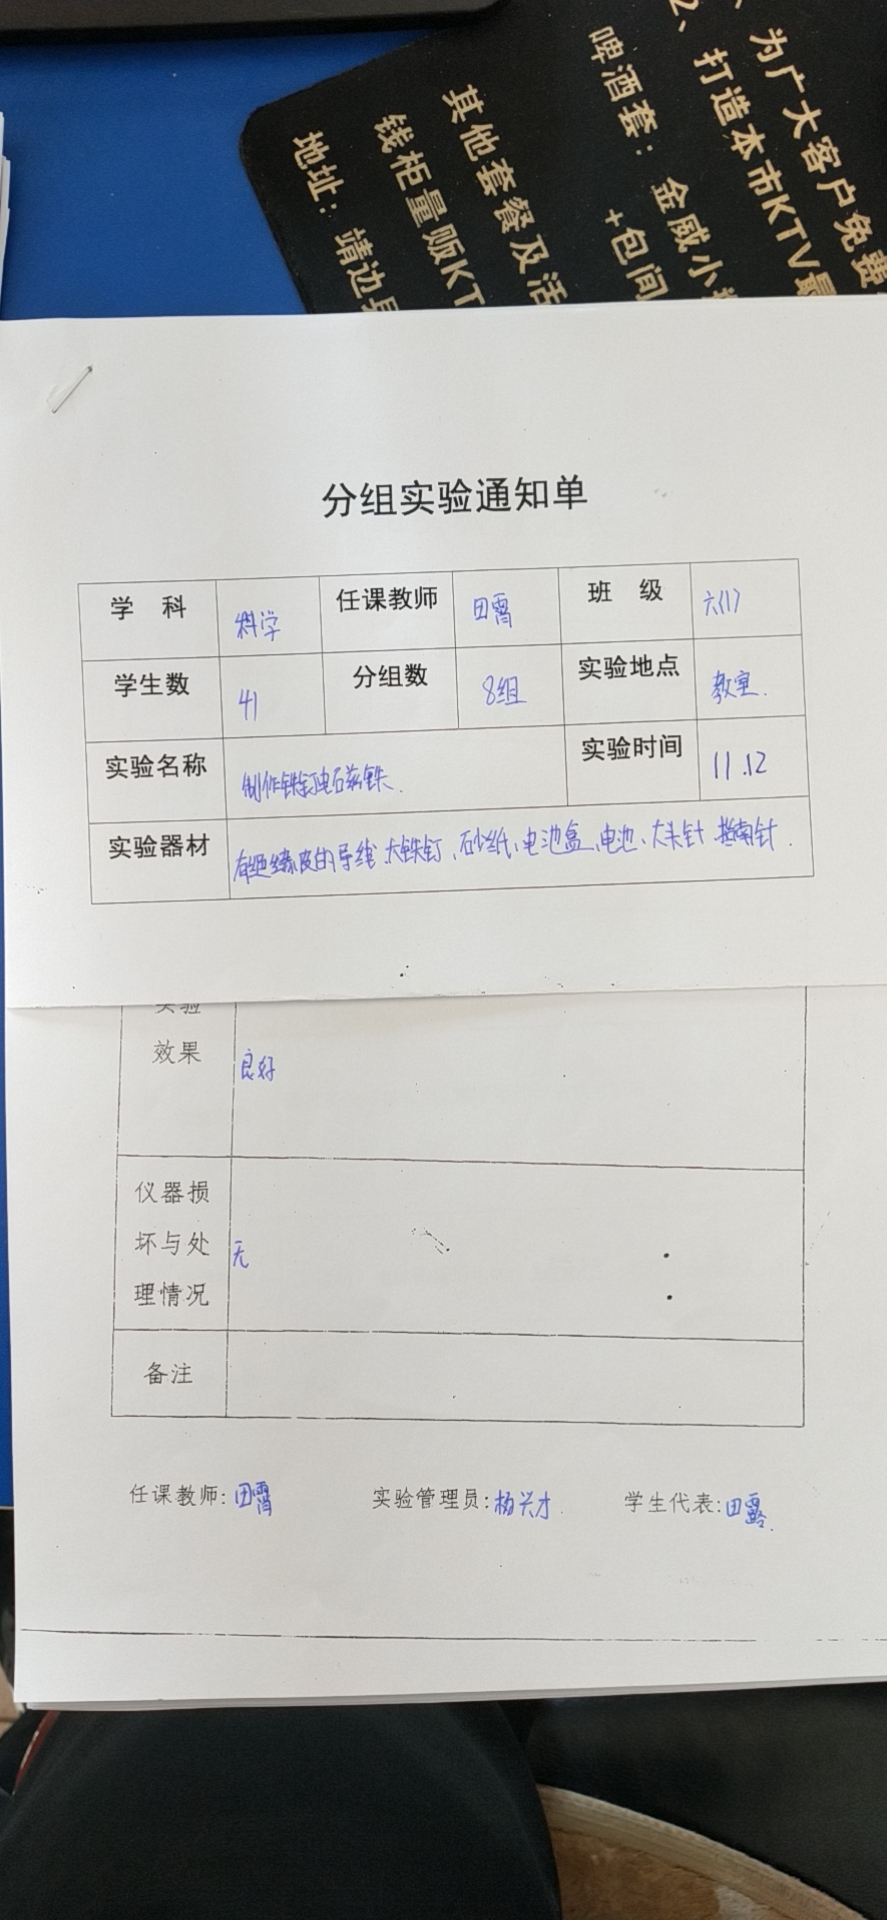 2、打造本市KTV最
、为广大客户免费
啤酒套：金威小
+包间
其他套餐及活
钱柜量贩KT
地址：靖边县
分组实验通知单
学 科 科学 任课教师 田霄 班 级 六(1)
学生数 41 分组数 8组 实验地点 教室.
实验名称 制作铁钉电磁铁. 实验时间 11.12
实验器材 有绝缘皮的导线、大铁钉、砂纸、电池盒、电池、大头针 指南针.
实验
效果 良好
仪器损
坏与处 无
理情况
备注
任课教师:田霄 实验管理员:杨兴才. 学生代表:田露.